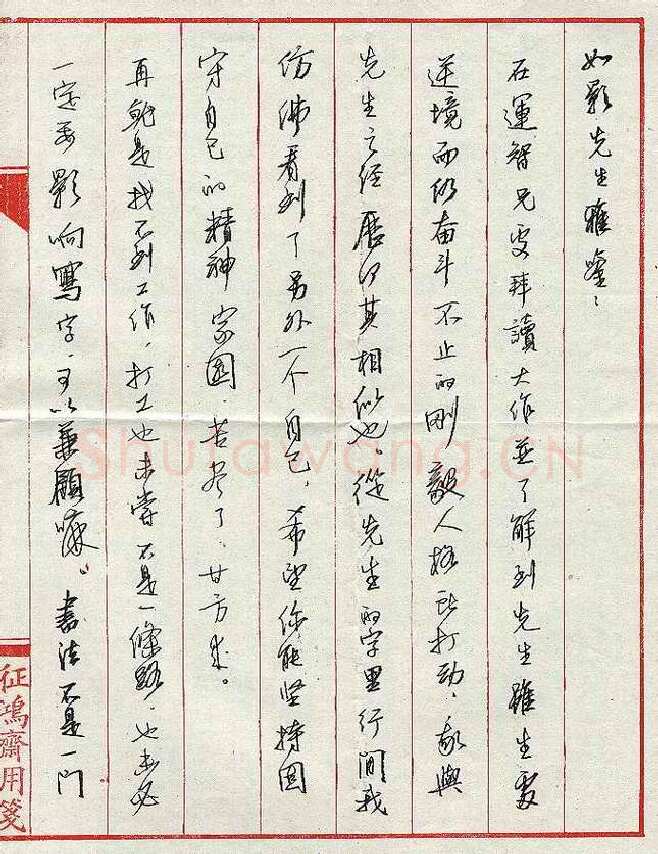 如影先生雅鉴：
在運智兄处拜讀大作並了解到先生雖生处
逆境而仍奋斗不止的刚毅人格所打动，我與
先生之经歷何其相似也。從先生的字里行间我
仿佛看到了另外一个自己，希望你能坚持固
守自己的精神家园。苦尽了，甘方来。
再就是找不到工作，打工也未嘗不是一條路，也未必
一定要影响寫字，可以兼顧嘛。書法不是一门
征鴻齋用笺
Shufawang.CN